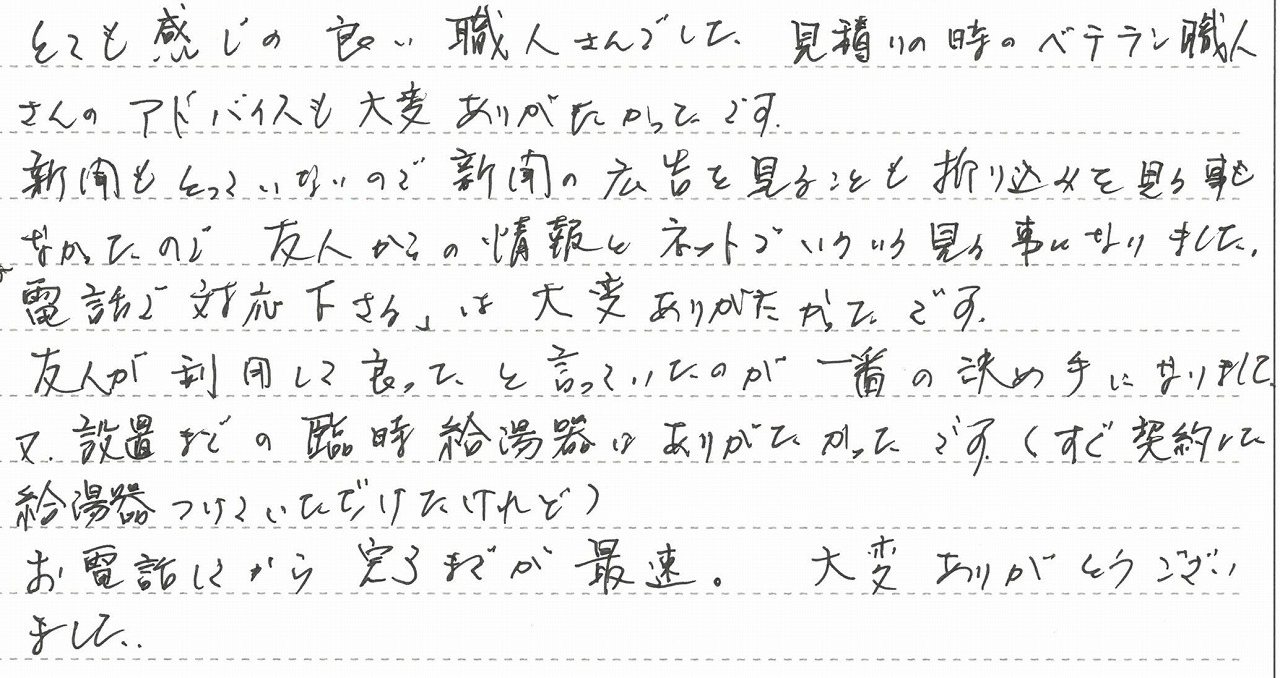 とても感じの良い職人さんでした。見積りの時のベテラン職人
さんのアドバイスも大変ありがたかったです。
新聞もとっていないので新聞の広告を見ることも折り込みを見る事も
なかったので友人からの情報とネットでいろいろ見る事になりました。
電話で対応下さる」は大変ありがたかったです。
友人が利用して良かったと言っていたのが一番の決め手になりまして
又、設置までの臨時給湯器はありがたかったです。(すぐ契約した
給湯器つけていただけたけれど)
お電話してから完了までが最速。大変ありがとうござい
ました。